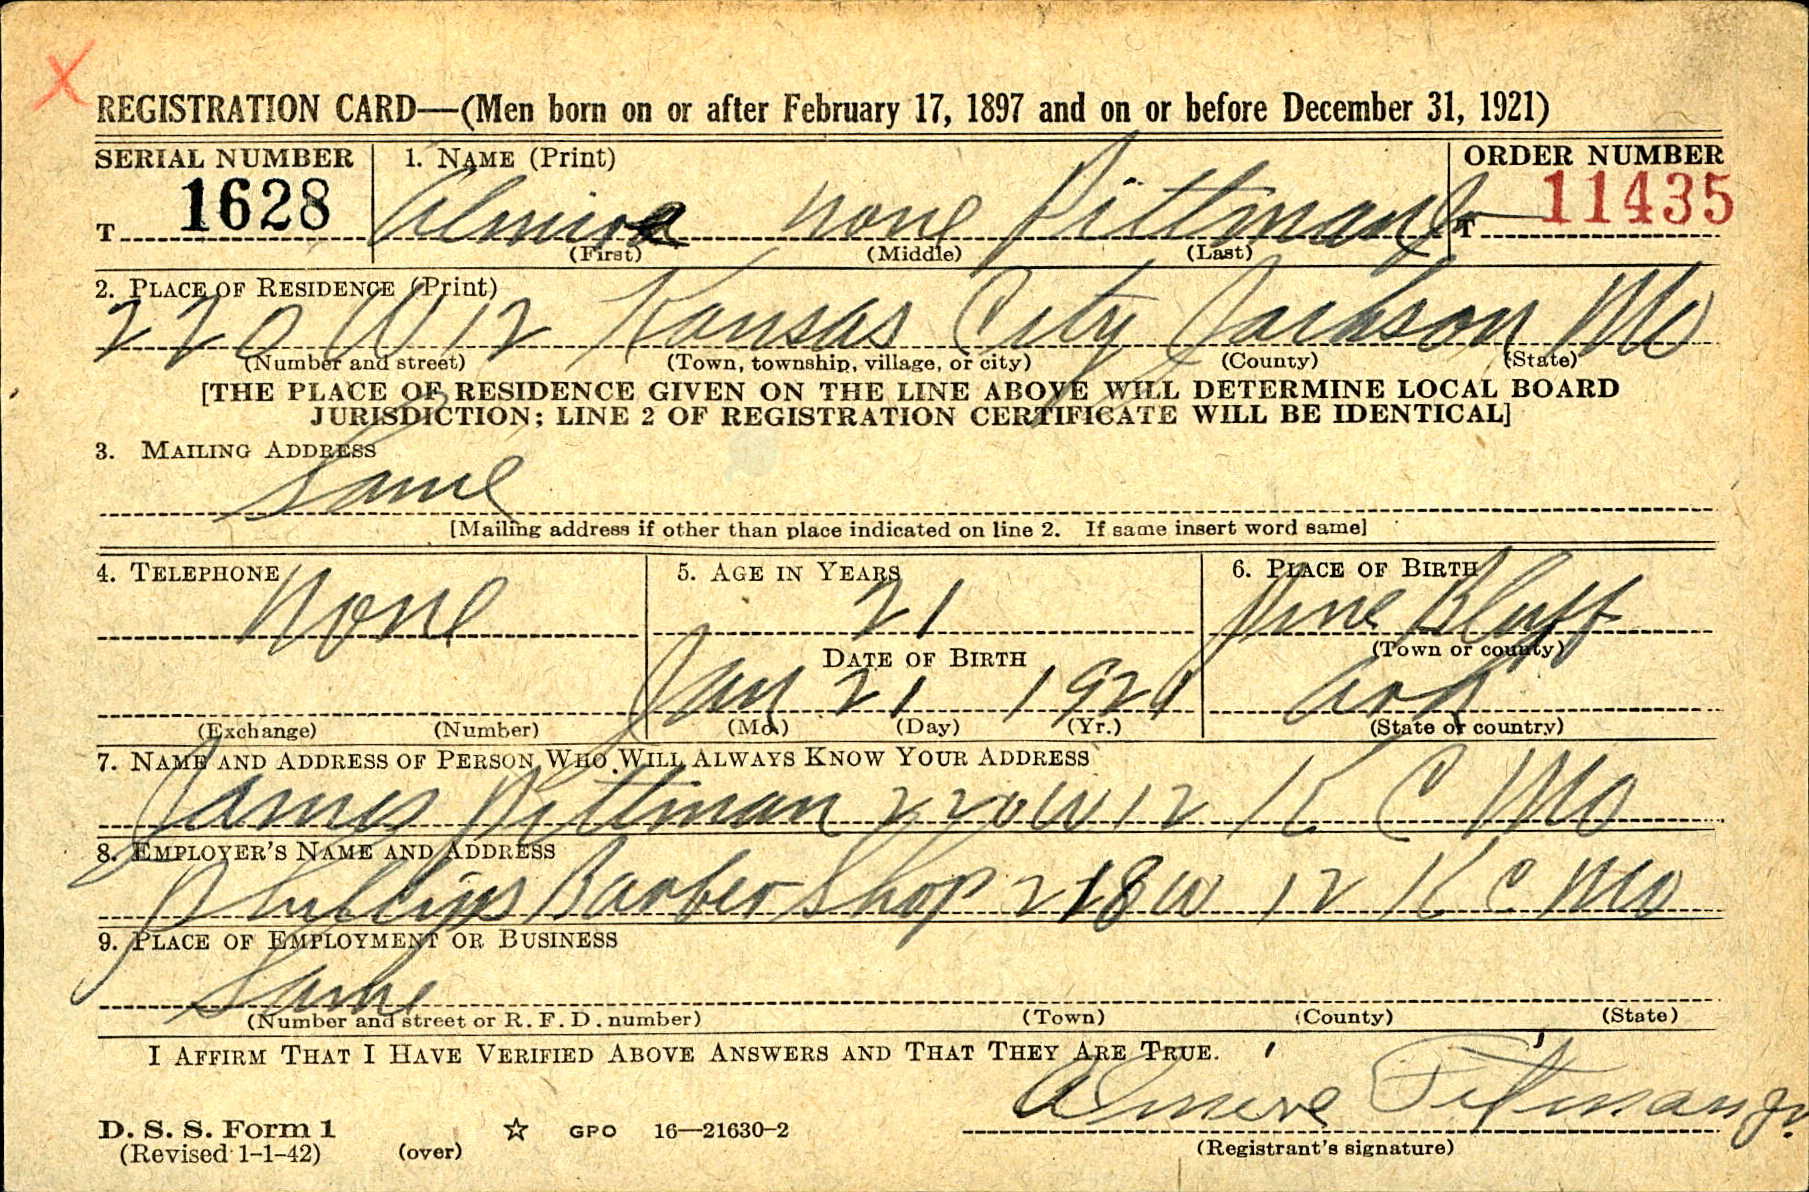 X
REGISTRATION CARD—(Men born on or after February 17, 1897 and on or before December 31, 1921)
SERIAL NUMBER 1. NAME (Print) ORDER NUMBER
T 1628 none Pittman Jr T 11435
(First) (Middle) (Last)
2. PLACE OF RESIDENCE (Print)
220 W 12 Kansas City Jackson Mo
(Number and street) (Town, township, village, or city) (County) (State)
[THE PLACE OF RESIDENCE GIVEN ON THE LINE ABOVE WILL DETERMINE LOCAL BOARD
JURISDICTION; LINE 2 OF REGISTRATION CERTIFICATE WILL BE IDENTICAL]
3. MAILING ADDRESS
Same
[Mailing address if other than place indicated on line 2. If same insert word same]
4. TELEPHONE 5. AGE IN YEARS 6. PLACE OF BIRTH
None 21 Pine Bluff
DATE OF BIRTH (Town or county)
Jan 21 1921 Ark
(Exchange) (Number) (Mo.) (Day) (Yr.) (State or country)
7. NAME AND ADDRESS OF PERSON WHO WILL ALWAYS KNOW YOUR ADDRESS
James Pittman 220 W 12 K C Mo
8. EMPLOYER'S NAME AND ADDRESS
Phillips Barber Shop 218 W 12 K C Mo
9. PLACE OF EMPLOYMENT OR BUSINESS
Same
(Number and street or R. F. D. number) (Town) (County) (State)
I AFFIRM THAT I HAVE VERIFIED ABOVE ANSWERS AND THAT THEY ARE TRUE.
Pitman Jr.
D. S. S. Form 1 ☆ GPO 16—21630-2
(Revised 1-1-42) (over) (Registrant's signature)